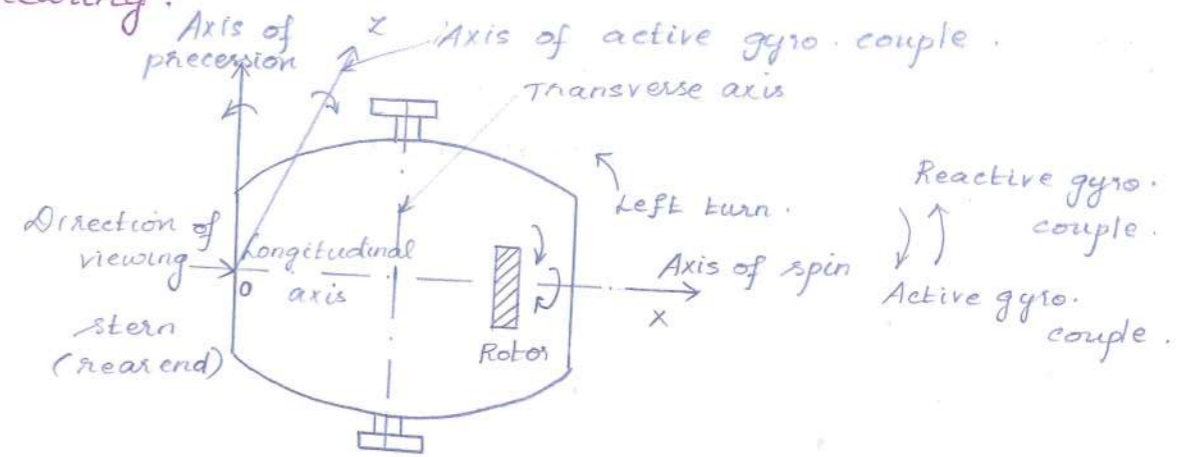 Axis of
precession
Z
Axis of active gyro. couple.
Transverse axis
Left turn.
Reactive gyro.
couple.
Direction of
viewing
Longitudinal
axis
O
Axis of spin
X
Active gyro.
couple.
stern
(rear end)
Rotor